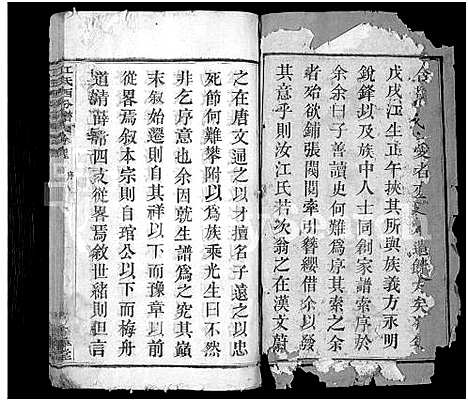 愛者
戊戌江生正午挾其所與族義方永明
銳鋒以及族中人士同創家譜索序於
余余曰子善讀史何難爲序其索之余
者殆欲鋪張閥閱牽引簪纓借余以發
其意乎則汝江氏若次翁之在漢文蔚
之在唐文通之以才擅名子遠之以忠
死節何難攀附以爲族乘光生曰不然
非乞序意也余因就生譜爲之究其巔
末叙始遷則自其祥以下於豫章以前
從畧焉叙本宗則自琯公以下而梅舟
道靖薛壻四支從畧焉敘世緒則但言